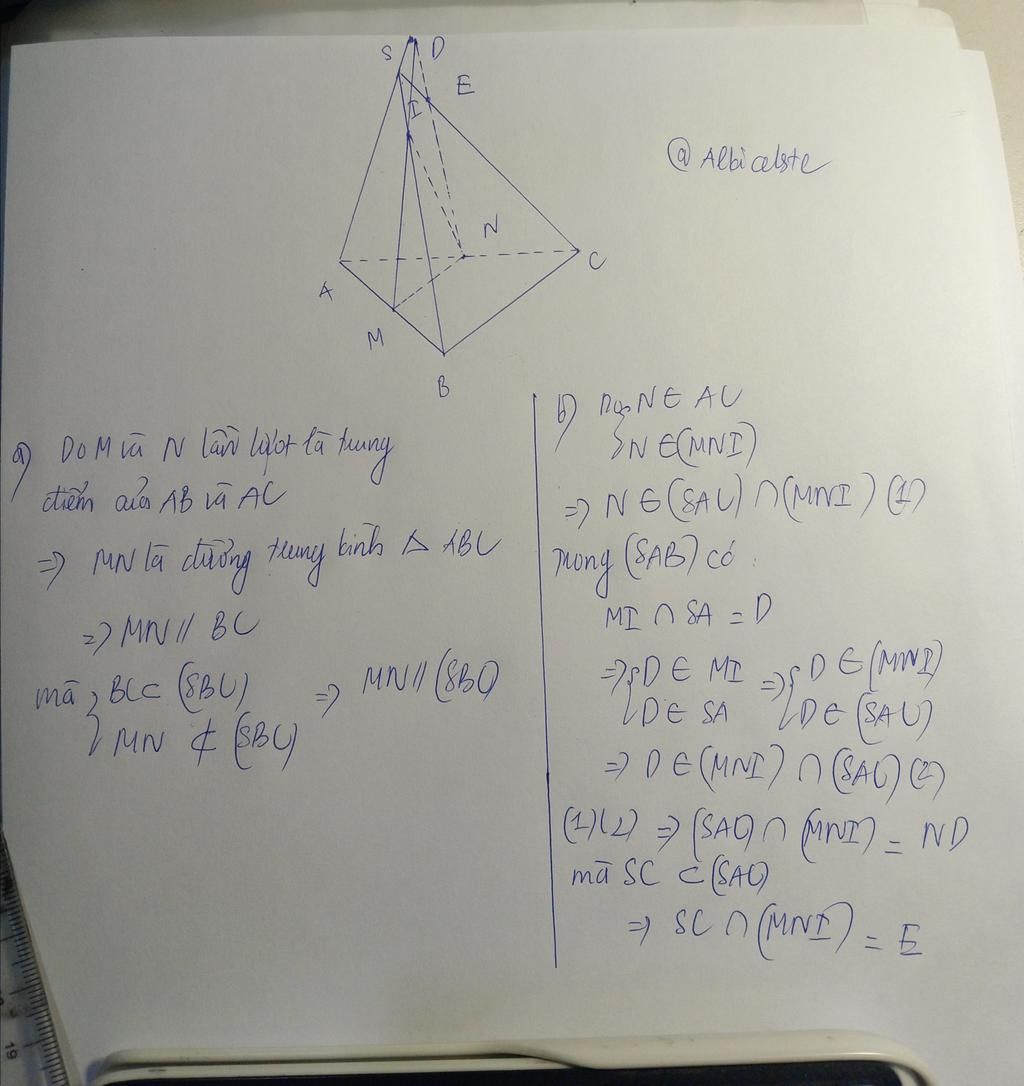 S D
E
I
@ Albiceleste
N
A
C
M
B
a) Do M và N lần lượt là trung
điểm của AB và AC
=> MN là đường trung bình Δ ABC
=> MN // BC
mà { BC ⊂ (SBC) => MN // (SBC)
MN ⊄ (SBC)
b) Do { N ∈ AC
N ∈ (MNI)
=> N ∈ (SAC) ∩ (MNI) (1)
Trong (SAB) có
MI ∩ SA = D
=> { D ∈ MI => { D ∈ (MNI)
D ∈ SA D ∈ (SAC)
=> D ∈ (MNI) ∩ (SAC) (2)
(1)(2) => (SAC) ∩ (MNI) = ND
mà SC ⊂ (SAC)
=> SC ∩ (MNI) = E
19